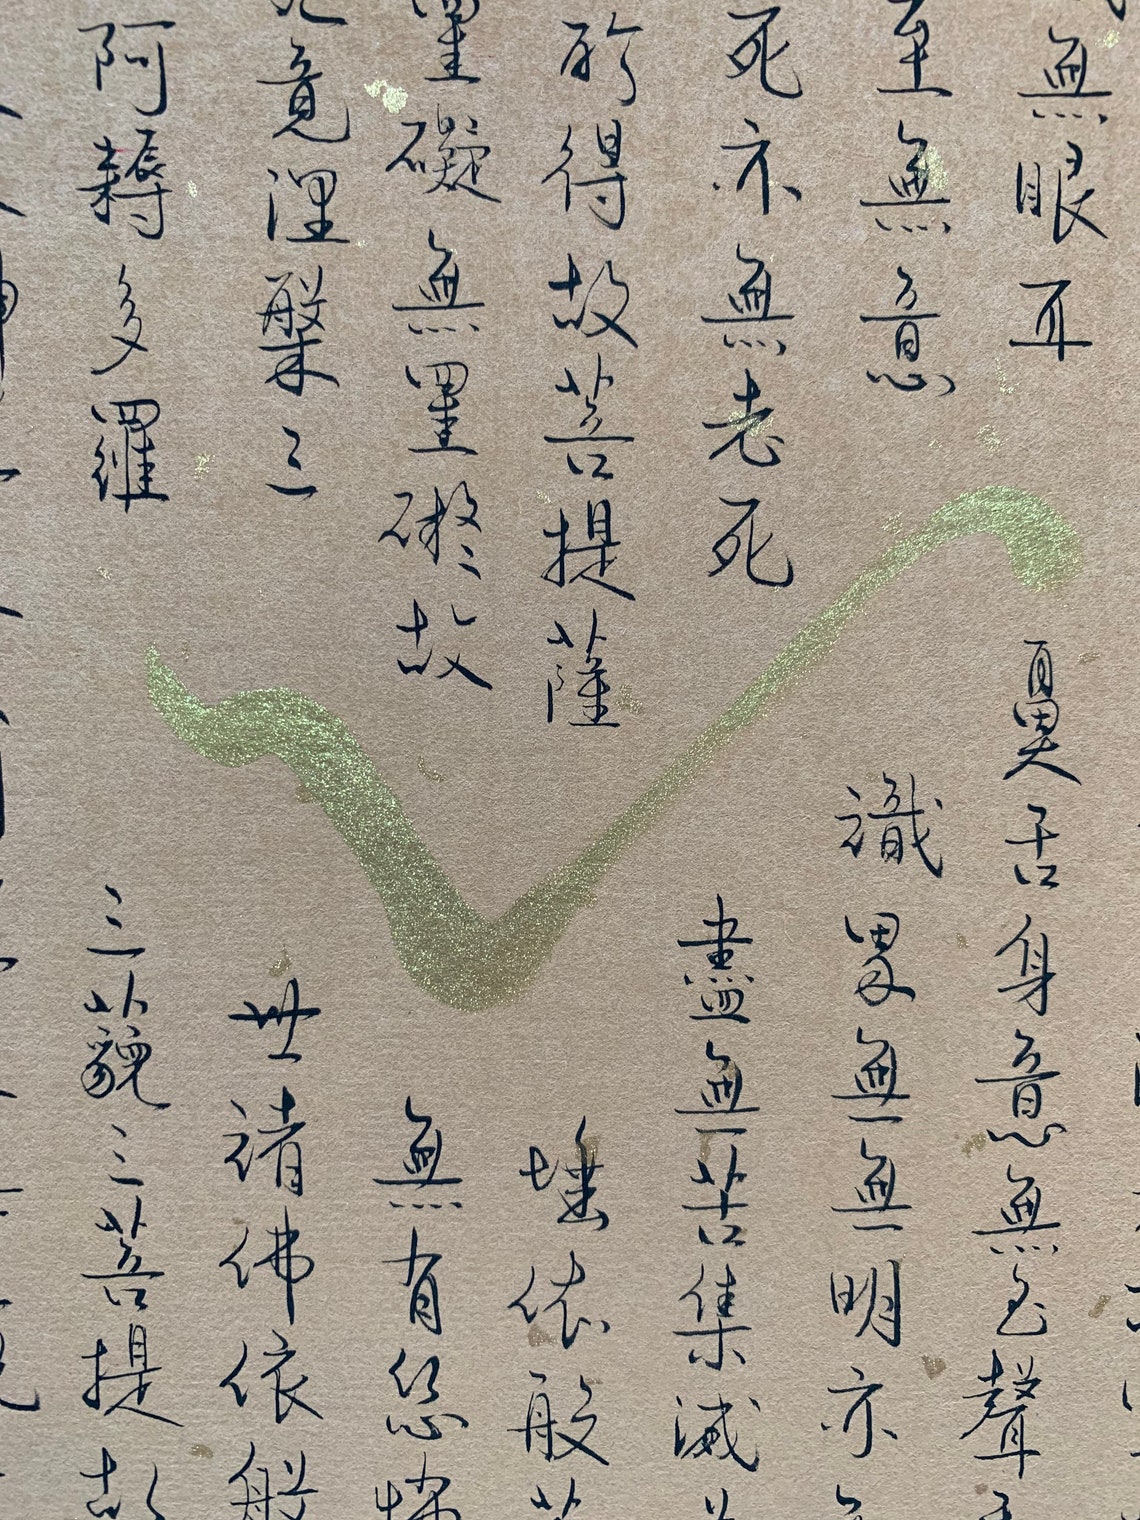 無眼耳鼻舌身意無色聲
至無意識界無無明亦
死亦無老死盡無苦集滅
所得故菩提薩埵依般
罣礙無罣礙故無有恐
究竟涅槃三世諸佛依般
阿耨多羅三藐三菩提故